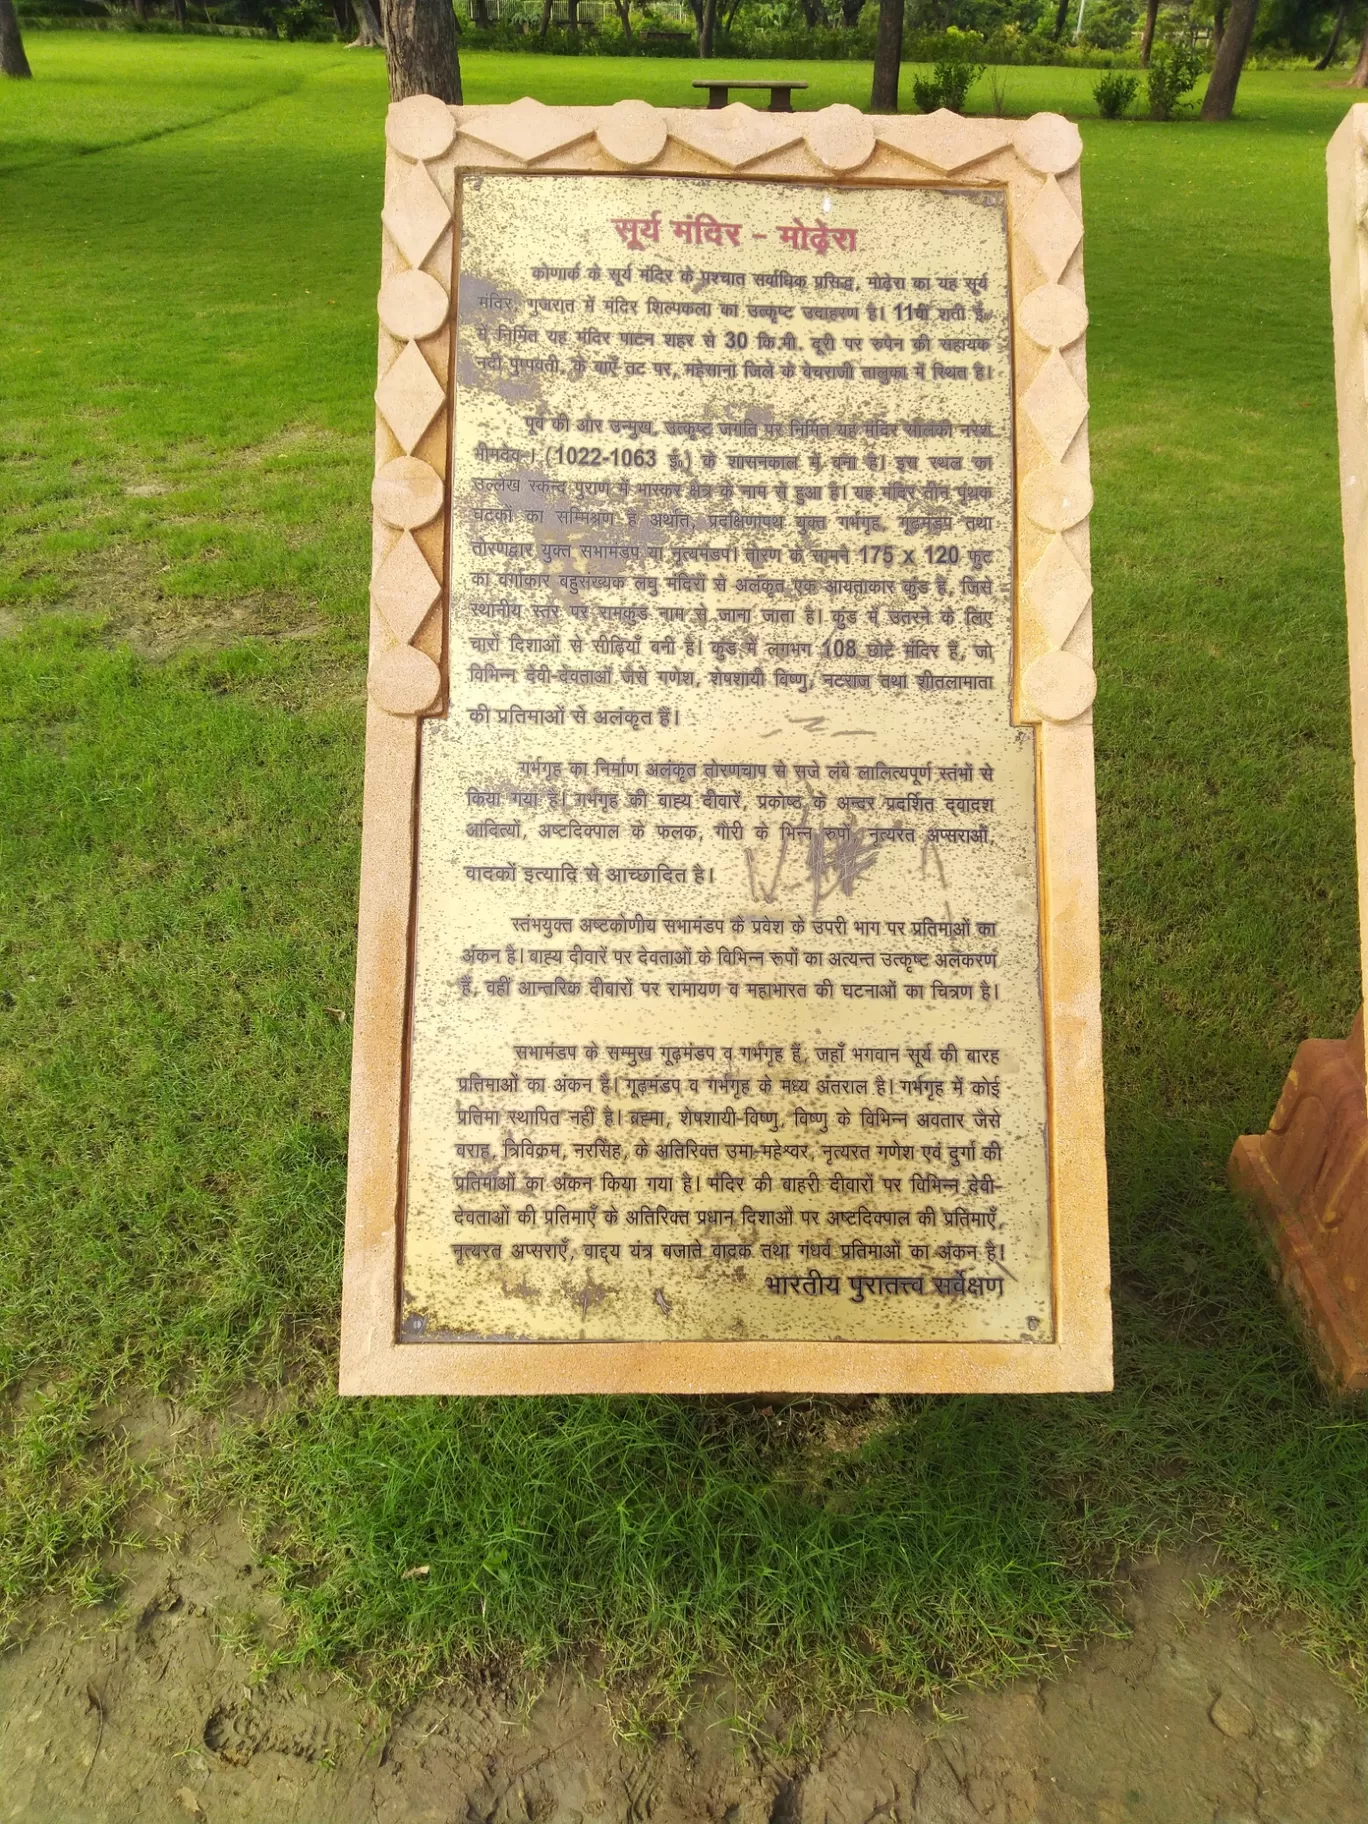 सूर्य मंदिर - मोढ़ेरा
कोणार्क के सूर्य मंदिर के पश्चात सर्वाधिक प्रसिद्ध, मोढ़ेरा का यह सूर्य
मंदिर, गुजरात में मंदिर शिल्पकला का उत्कृष्ट उदाहरण है। 11वीं शती ई॰
में निर्मित यह मंदिर पाटन शहर से 30 कि.मी. दूरी पर रुपेन की सहायक
नदी पुष्पवती, के बाएँ तट पर, महेसाना जिले के बेचराजी तालुका में स्थित है।
पूर्व की ओर उन्मुख, उत्कृष्ट जगति पर निर्मित यह मंदिर सोलंकी नरेश
भीमदेव-। (1022-1063 ई॰) के शासनकाल में बना है। इस स्थल का
उल्लेख स्कन्द पुराण में भास्कर क्षेत्र के नाम से हुआ है। यह मंदिर तीन पृथक
घटकों का सम्मिश्रण है अर्थात, प्रदक्षिणापथ युक्त गर्भगृह, गूढ़मंडप तथा
तोरणद्वार युक्त सभामंडप या नृत्यमंडप। तोरण के सामने 175 x 120 फुट
का वर्गाकार बहुसंख्यक लघु मंदिरों से अलंकृत एक आयताकार कुंड है, जिसे
स्थानीय स्तर पर रामकुंड नाम से जाना जाता है। कुंड में उतरने के लिए
चारों दिशाओं से सीढ़ियाँ बनी है। कुंड में लगभग 108 छोटे मंदिर हैं, जो
विभिन्न देवी-देवताओं जैसे गणेश, शेषशायी विष्णु, नटराज तथा शीतलामाता
की प्रतिमाओं से अलंकृत हैं।
गर्भगृह का निर्माण अलंकृत तोरणचाप से सजे लंबे लालित्यपूर्ण स्तंभों से
किया गया है। गर्भगृह की बाह्य दीवारें, प्रकोष्ठ के अन्दर प्रदर्शित द्वादश
आदित्यों, अष्टदिक्पाल के फलक, गौरी के भिन्न रुपों, नृत्यरत अप्सराओं,
वादकों इत्यादि से आच्छादित है।
स्तंभयुक्त अष्टकोणीय सभामंडप के प्रवेश के उपरी भाग पर प्रतिमाओं का
अंकन है। बाह्य दीवारें पर देवताओं के विभिन्न रूपों का अत्यन्त उत्कृष्ट अलंकरण
हैं, वहीं आन्तरिक दीवारों पर रामायण व महाभारत की घटनाओं का चित्रण है।
सभामंडप के सम्मुख गूढ़मंडप व गर्भगृह हैं, जहाँ भगवान सूर्य की बारह
प्रतिमाओं का अंकन है। गूढ़मंडप व गर्भगृह के मध्य अंतराल है। गर्भगृह में कोई
प्रतिमा स्थापित नहीं है। ब्रह्मा, शेषशायी-विष्णु, विष्णु के विभिन्न अवतार जैसे
बराह, त्रिविक्रम, नरसिंह, के अतिरिक्त उमा-महेश्वर, नृत्यरत गणेश एवं दुर्गा की
प्रतिमाओं का अंकन किया गया है। मंदिर की बाहरी दीवारों पर विभिन्न देवी-
देवताओं की प्रतिमाएँ के अतिरिक्त प्रधान दिशाओं पर अष्टदिक्पाल की प्रतिमाएँ,
नृत्यरत अप्सराएँ, वाद्दय यंत्र बजाते वादक तथा गंधर्व प्रतिमाओं का अंकन है।
भारतीय पुरातत्त्व सर्वेक्षण